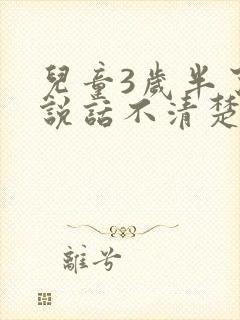 兒童3歲半
說話不清楚
離兮